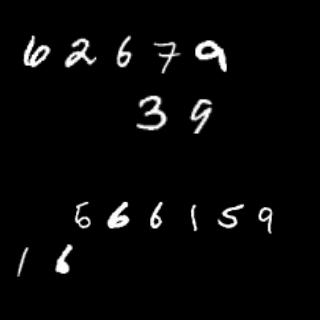 6 2 6 7 9
3 9
5 6 6 1 5 9
1 6